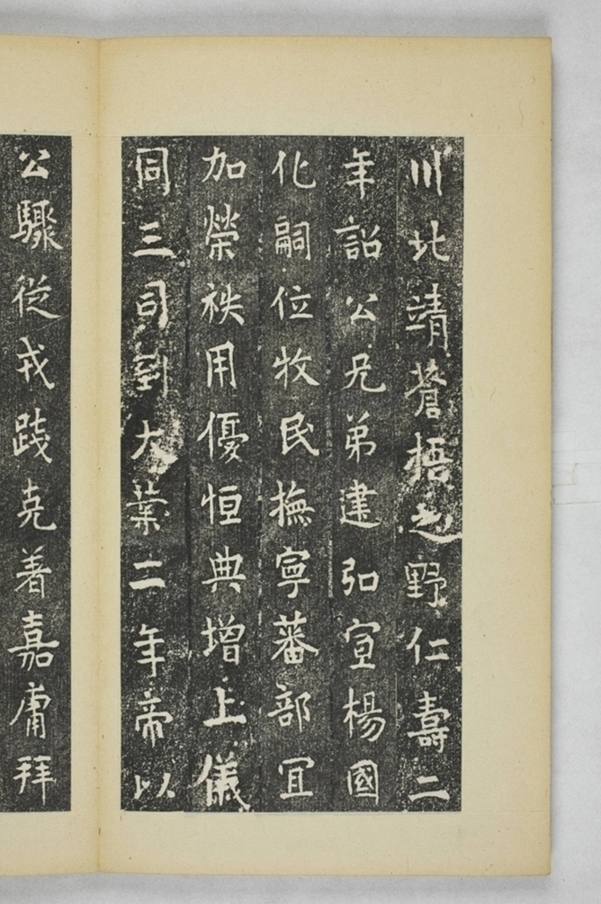 川北靖蒼梧之野仁壽二
年詔公兄弟建弘宣楊國
化嗣位牧民撫寧蕃部宜
加榮袟用優恒典增上儀
同三司到大業二年帝以
公驟從戎踐克著嘉庸拜